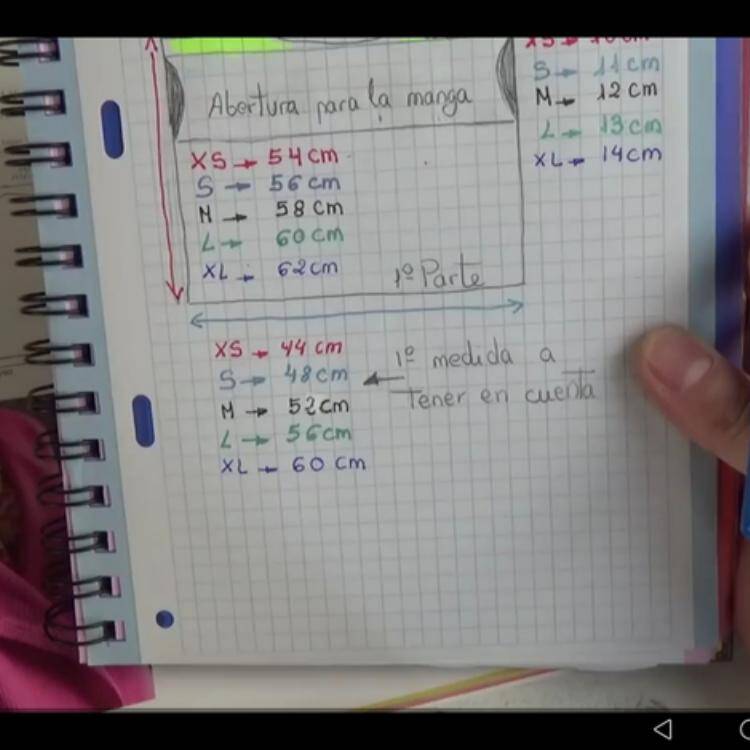 S → 11cm
M → 12cm
L → 13cm
XL → 14cm
Abertura para la manga
XS → 54cm
S → 56cm
M → 58cm
L → 60cm
XL → 62cm
1º Parte
XS → 44cm
S → 48cm
M → 52cm
L → 56cm
XL → 60 cm
1º medida a
Tener en cuenta